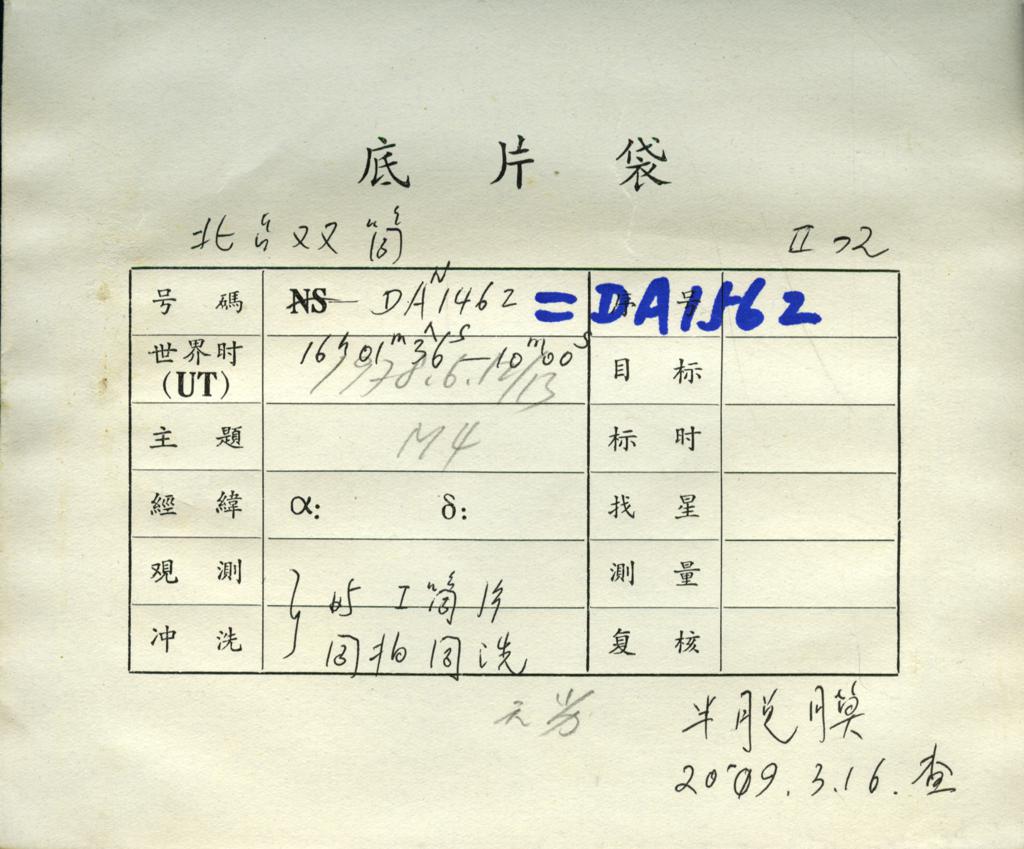 底片袋
北台双筒 II 22
号碼 NS DA N 1462 = DA1562 序号
世界时(UT) 16h01m36s—10m00s 目标
1978.6.12/13
主題 M4 标时
經緯 α: δ: 找星
观測 与I筒片 測量
冲洗 同拍同洗 复核
半脱膜
2009.3.16.查